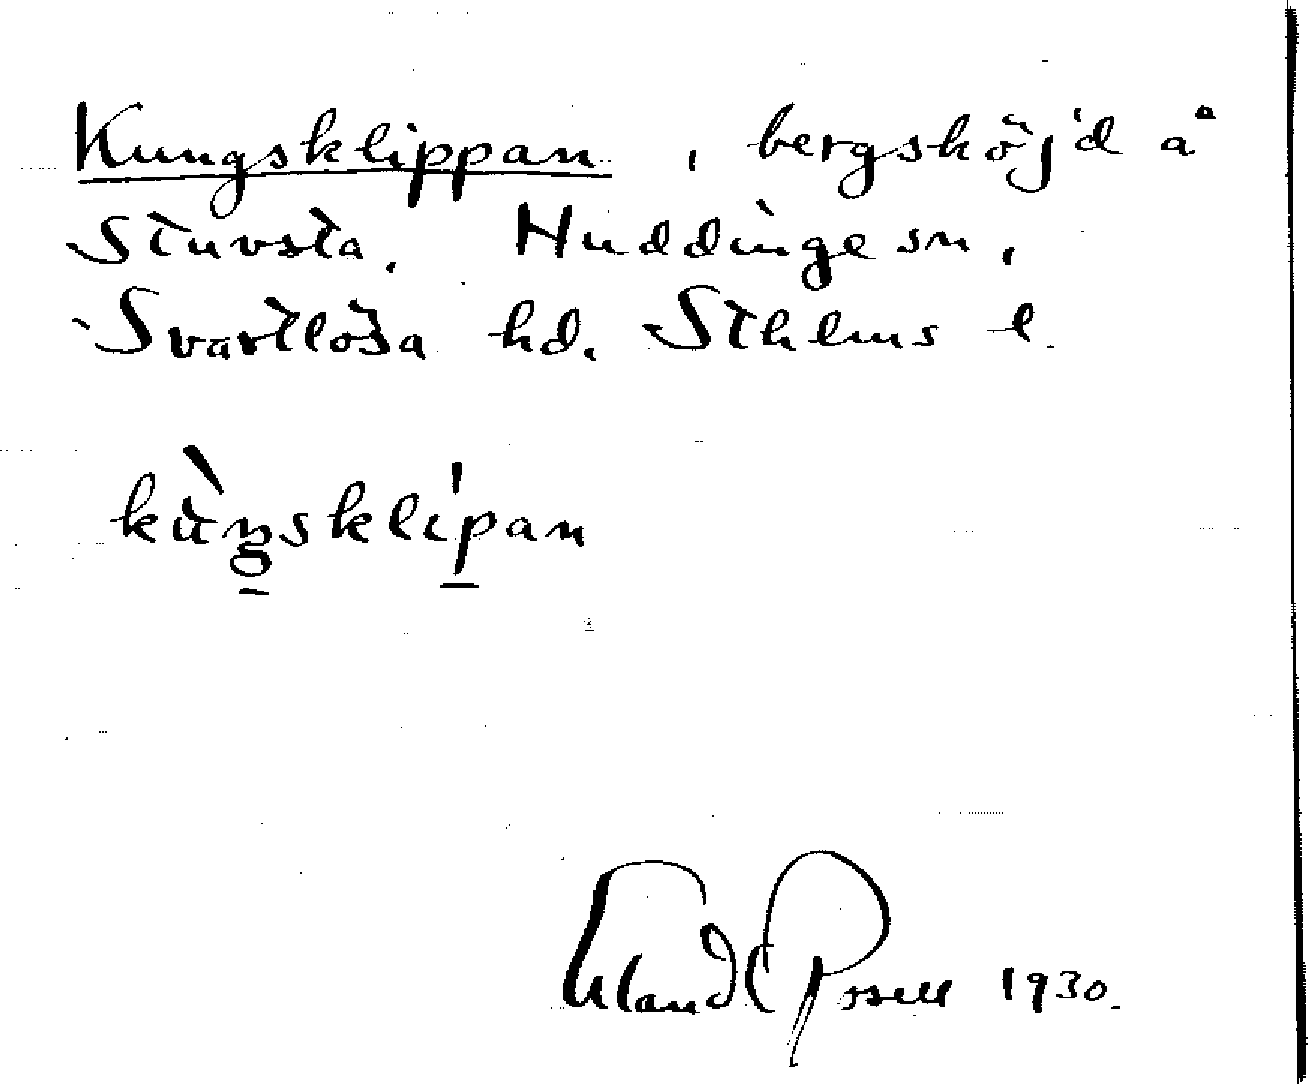 Kungsklippan, bergshöjd å
Stuvsta, Huddinge sn,
Svartlösa hd. Sthlms l.
kùŋsklìpan
Rosell 1930.